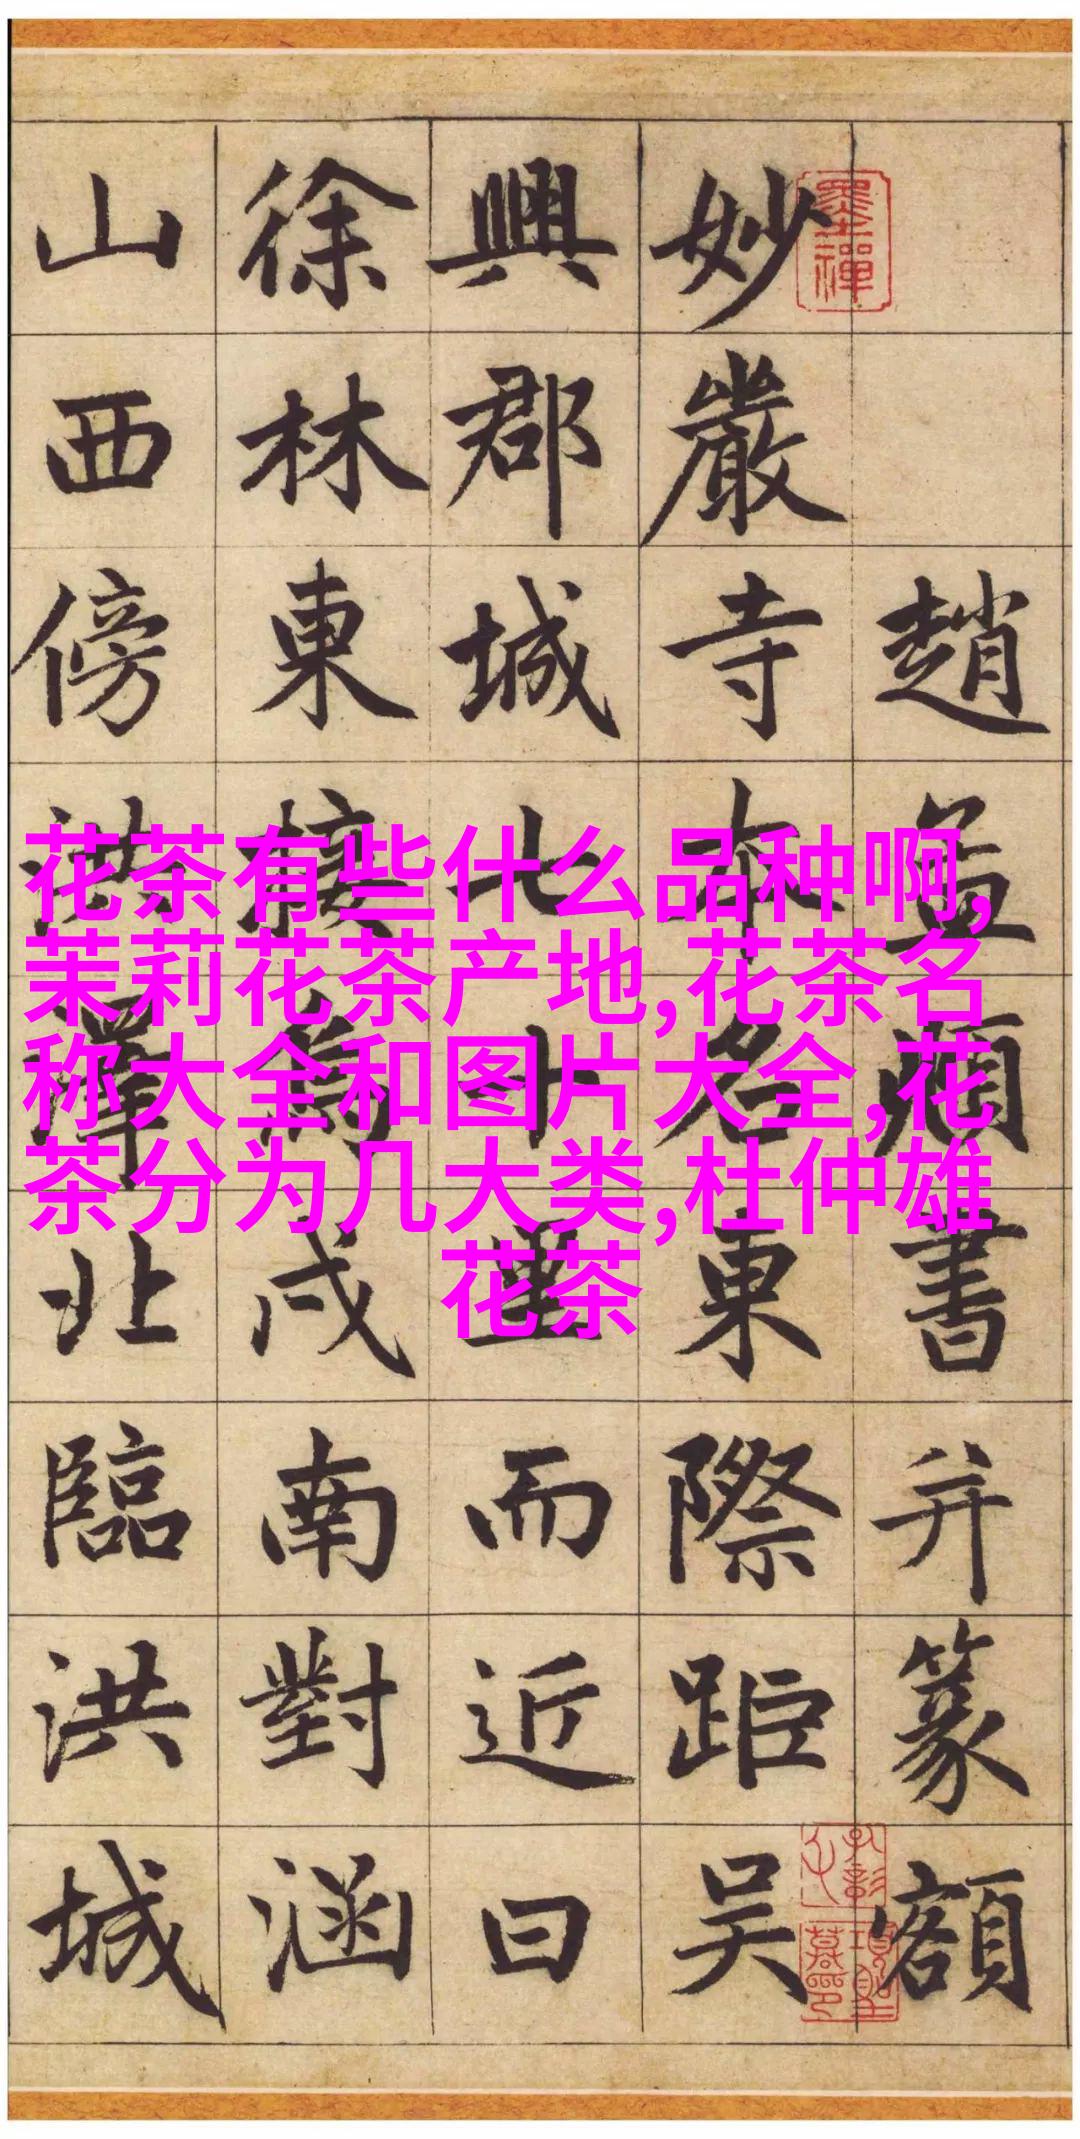 趙孟頫書并篆額
妙嚴寺本名東際距吳
興郡城七十里而近曰
徐林東接烏戍南對涵
山西傍洪澤北臨洪城
墨禪
花茶有些什么品种啊,
茉莉花茶产地,花茶名
称大全和图片大全,花
茶分为几大类,杜仲雄
花茶